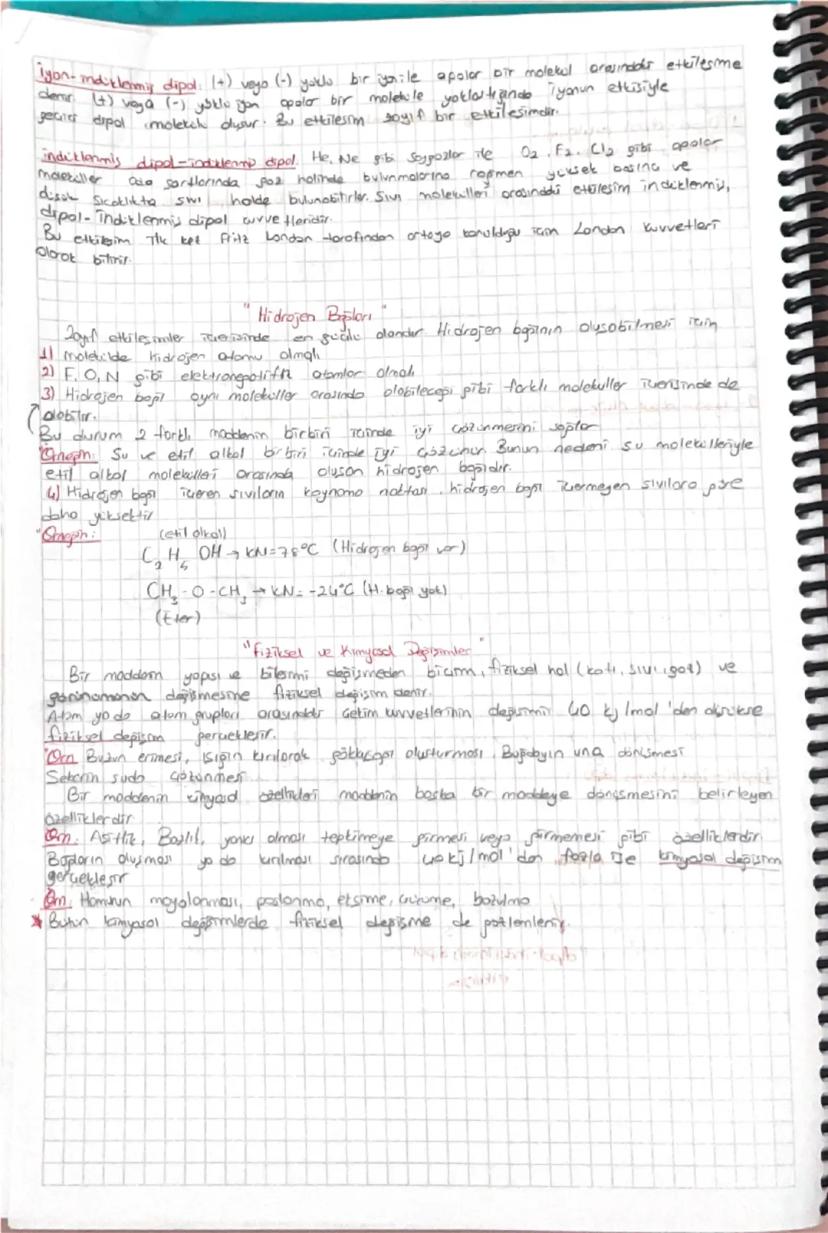 iyon-indüklenmiş dipol: (+) veya (-) yüklü bir iyon ile apolar bir molekül arasındaki etkileşime
denir. (+) veya (-) yüklü iyon apolar bir moleküle yaklaştığında iyonun etkisiyle
geçici dipol molekülü oluşur. Bu etkileşim zayıf bir etkileşimdir.
indüklenmiş dipol-indüklenmiş dipol: He, Ne gibi soygazlar ile O2, F2, Cl2 gibi apolar
moleküller oda şartlarında gaz halinde bulunmalarına rağmen yüksek basınç ve
düşük sıcaklıkta sıvı halde bulunabilirler. Sıvı molekülleri arasındaki etkileşim indüklenmiş,
dipol-indüklenmiş dipol kuvvetleridir.
Bu etkileşim ilk kez Fritz London tarafından ortaya konulduğu için London kuvvetleri
olarak bilinir.
"Hidrojen Bağları"
Zayıf etkileşimler içerisinde en güçlü olanıdır Hidrojen bağının oluşabilmesi için
1) Molekülde hidrojen atomu olmalı
2) F, O, N gibi elektronegatifli atomlar olmalı
3) Hidrojen bağı aynı moleküller arasında olabileceği gibi farklı moleküller içerisinde de
olabilir.
Bu durum 2 farklı maddenin birbiri içinde iyi çözünmesini sağlar
"Örneğin: Su ve etil alkol birbiri içinde iyi çözünür. Bunun nedeni su molekülleriyle
etil alkol molekülleri arasında oluşan hidrojen bağıdır.
4) Hidrojen bağı içeren sıvıların kaynama noktası, hidrojen bağı içermeyen sıvılara göre
daha yüksektir
"Örneğin: (etil alkol)
C2 H5 OH → KN=78°C (Hidrojen bağı var)
CH3 - O - CH3 → KN= -24°C (H. bağı yok)
(Eter)
"Fiziksel ve Kimyasal Değişimler"
Bir maddenin yapısı ve bileşimi değişmeden biçim, fiziksel hal (katı, sıvı, gaz) ve
görünümünün değişmesine fiziksel değişim denir.
Atom ya da atom grupları arasındaki çekim kuvvetlerinin değişimi 40 kj/mol 'den düşükse
fiziksel değişim gerçekleşir.
"Örn: Buzun erimesi, ışığın kırılarak gökkuşağı oluşturması, Buğdayın una dönüşmesi
Şekerin suda çözünmesi
Bir maddenin kimyasal özellikleri maddenin başka bir maddeye dönüşmesini belirleyen
özelliklerdir
"Örn: Asitlik, Bazlık, yanıcı olması tepkimeye girmesi veya girmemesi gibi özelliklerdir
Bağların oluşması ya da kırılması sırasında 40 kj/mol 'den fazla ise kimyasal değişim
gerçekleşir
"Örn: Hamurun mayalanması, paslanma, ekşime, çürüme, bozulma
* Bütün kimyasal değişimlerde fiziksel değişme de gözlemlenir.